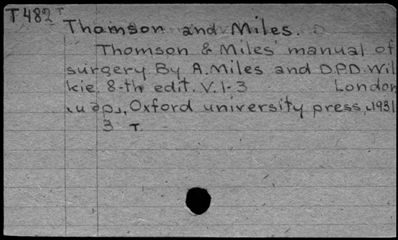 T482
Thomson and Miles.
Thomson & Miles' manual of
surgery By A. Miles and D.P.D. Wil
kie. 8-th edit. V. 1-3 London
Oxford university press, 1931
3 T.